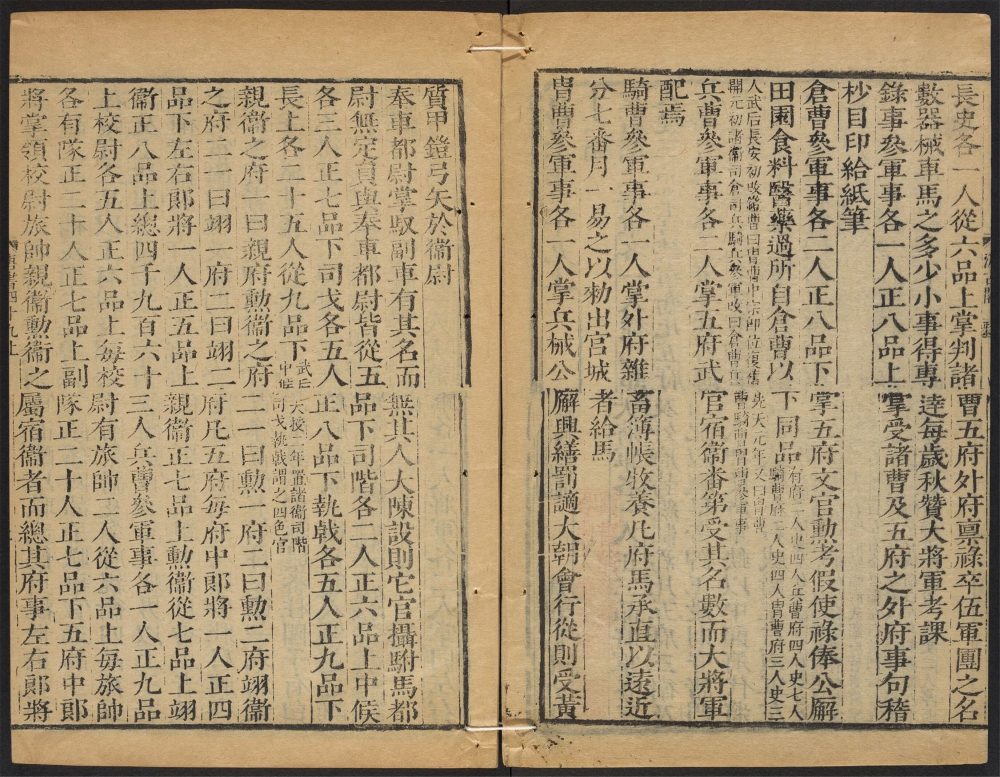 長史各一人從六品上掌判諸曹五府外府禀祿卒伍軍團之名
數器械車馬之多少小事得專達每歲秋贊大將軍考課
錄事參軍事各一人正八品上掌受諸曹及五府之外府事句稽
抄目印給紙筆
倉曹參軍事各二人正八品下掌五府文官勳考假使祿俸公廨
田園食料醫藥過所自倉曹以下同品有府二人史四人兵曹府四人史七人
騎曹府二人史四人冑曹府三人史三
人武后長安初改鎧曹曰冑曹中宗即位復舊先天元年又曰冑曹
開元初諸衞司倉司兵騎兵參軍改曰倉曹兵曹騎曹冑曹參軍事
兵曹參軍事各二人掌五府武官宿衞番第受其名數而大將軍
配焉
騎曹參軍事各一人掌外府雜畜簿帳牧養凡府馬承直以遠近
分七番月一易之以勑出宮城者給馬
冑曹參軍事各一人掌兵械公廨興繕罰讁大朝會行從則受黃
質甲鎧弓矢於衞尉
奉車都尉掌馭副車有其名而無其人大陳設則它官攝駙馬都
尉無定員與奉車都尉皆從五品下司階各二人正六品上中候
各三人正七品下司戈各五人正八品下執戟各五人正九品下
長上各二十五人從九品下武后天授二年置諸衞司階
中候司戈執戟謂之四色官
親衞之府一曰親府勳衞之府二一曰勳一府二曰勳二府翊衞
之府二一曰翊一府二曰翊二府凡五府每府中郎將一人正四
品下左右郎將一人正五品上親衞正七品上勳衞從七品上翊
衞正八品上總四千九百六十三人兵曹參軍事各一人正九品
上校尉各五人正六品上每校尉有旅帥二人從六品上每旅帥
各有隊正二十人正七品上副隊正二十人正七品下五府中郎
將掌領校尉旅帥親衞勳衞之屬宿衞者而總其府事左右郎將